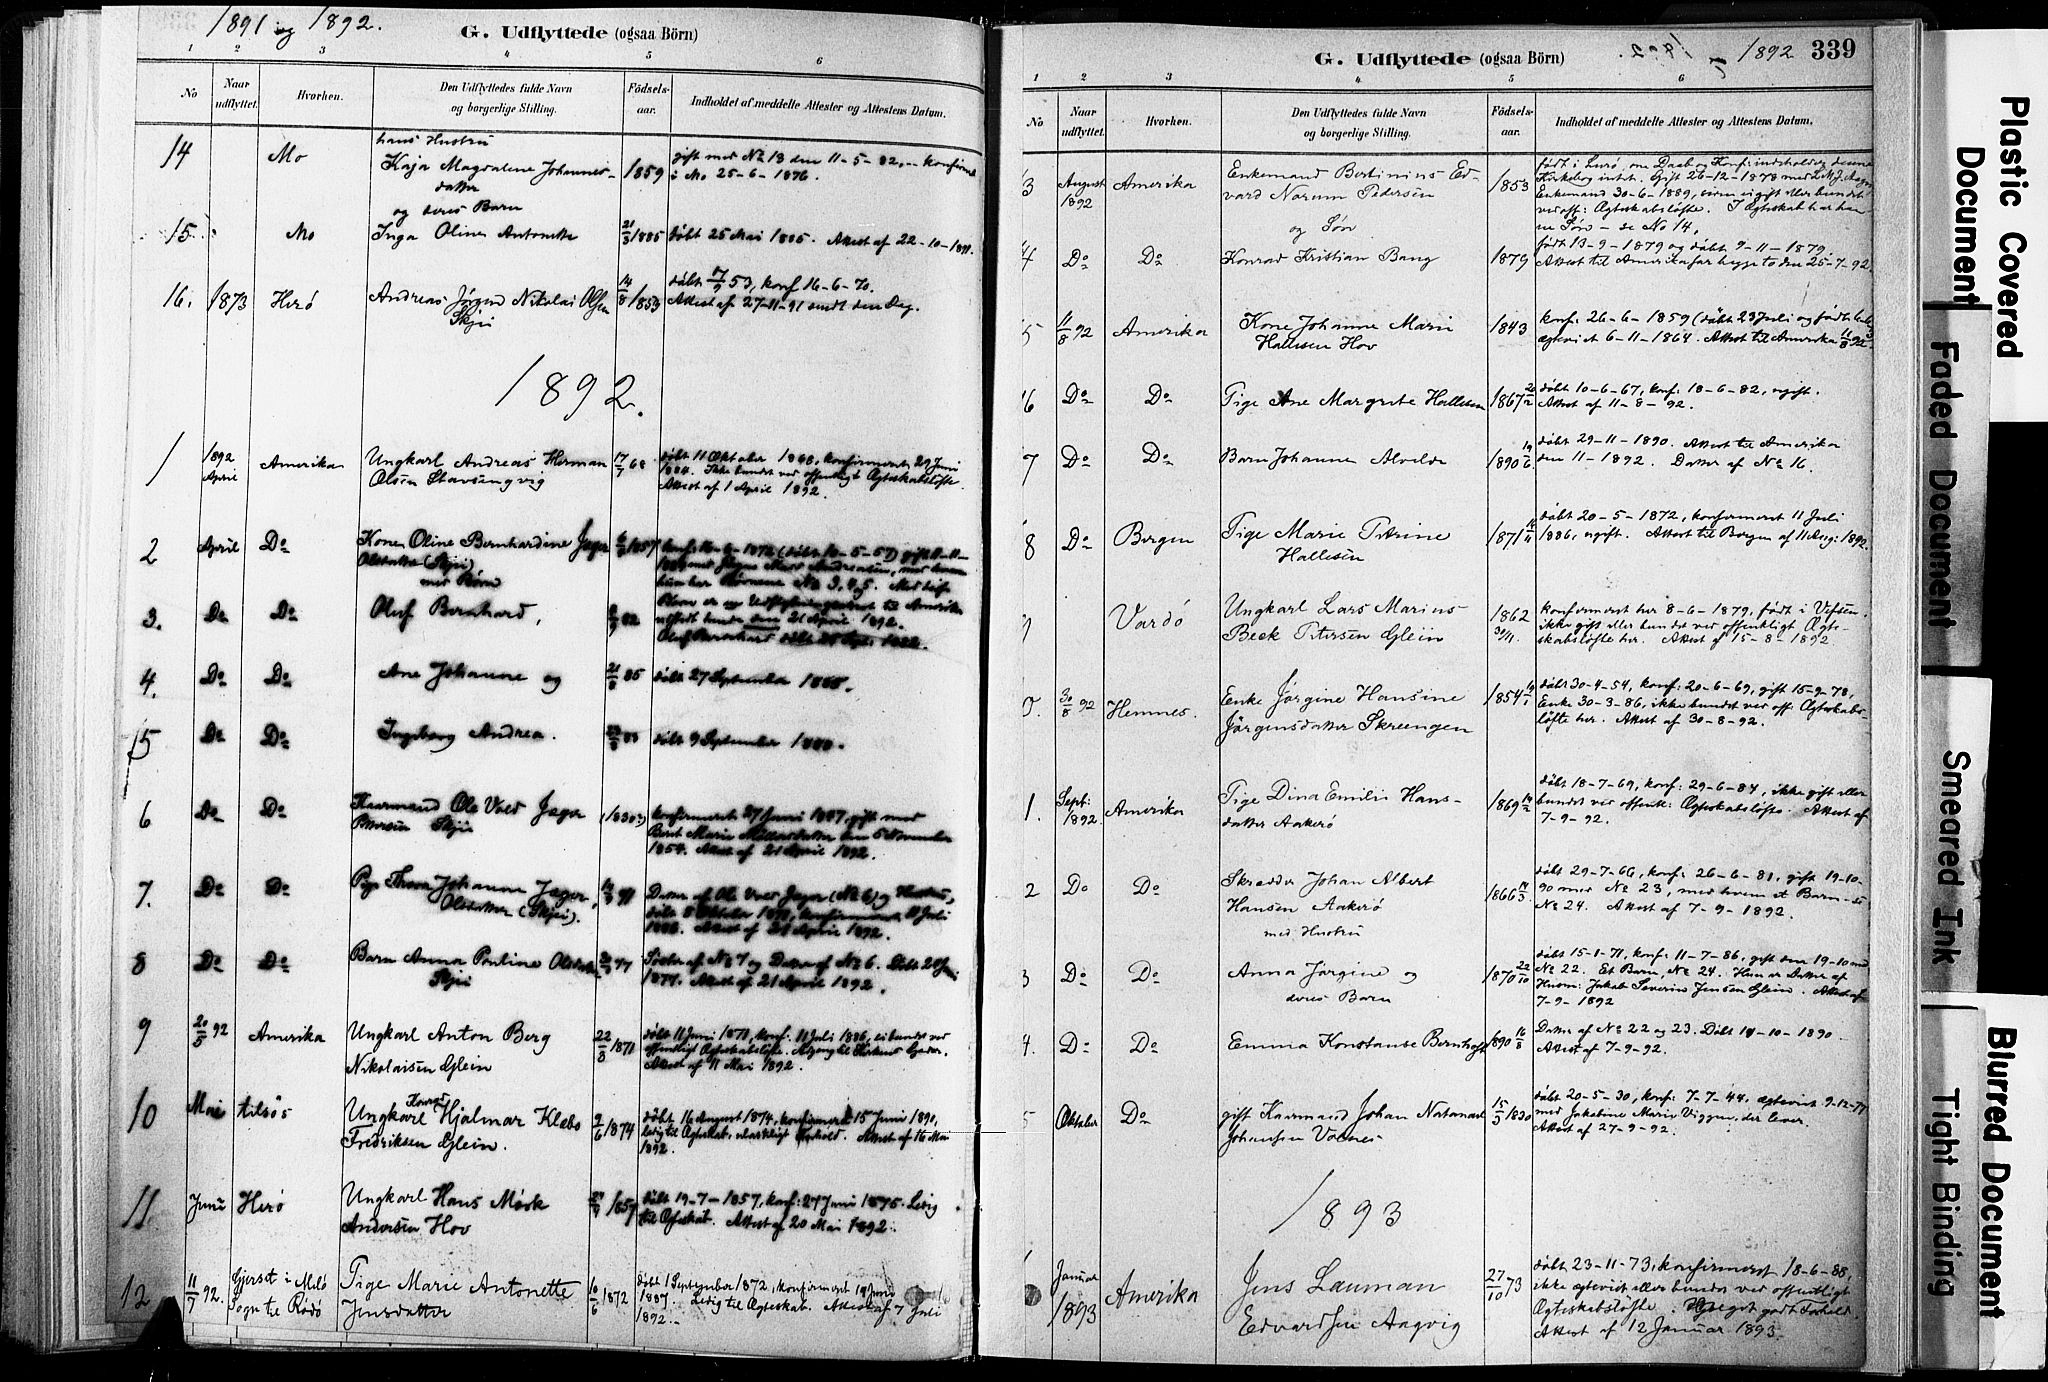 1891 og 1892.
G. Udflyttede (ogsaa Börn)
1 2 3 4 5 6
No
Naar udflyttet.
Hvorhen.
Den Udflyttedes fulde Navn
og borgerlige Stilling.
Födsels-
aar.
Indholdet af meddelte Attester og Attestens Datum.
hans Hustru
14 Mo Kaja Magdalene Johannes- 1859 gift med No 13 den 11-5-82, konfirmd
datter i Mo 25-6-1876.
og deres Barn
15 Mo Inga Oline Antonette 21/3 1885 döbt 25 Mai 1885. Attest af 22-10-1891.
16. 1873 Herö Andreas Jörgen Nikolai Olsen 14/8 1853 döbt 17/9 53, konf 16-6-70.
Skjei Attest af 27-11-91 sendt den Dag.
1892.
1 1892 April Amerika Ungkarl Andreas Herman 17/9 68 döbt 11 Oktober 1868, konfirmeret 29 Juni
Olsen Stavsengvig 1884. Ikke bundet ved offentligt Ægteskabslöfte.
Attest af 1 April 1892.
2 April Do Konen Oline Bernhardine Jæger 1857
Olsdatter (Skjei)
med Börn
3. Do Do Oluf Bernhard, 82
utstedt den 21 April 1892.
Oluf Bernhard döbt
4. Do Do Ane Johanne og 85 döbt 27 September 1885.
5 Do Do Ingeborg Andrea. döbt 9 September 1888.
6 Do Do Kaarmand Ole Vold Jæger konfirmeret 27 Juni 1847, gift med
Pettersen Skjei Berit Marie Möllersdatter den 5 November
1854. Attest af 21 April 1892.
7. Do Do Pige Thora Johanna Jæger Datter af Ole Vold Jæger (No 6) og Hustru,
Olsdatter (Skjei). döbt 8 Oktober 1871, konfirmeret 11 Juli
1886. Attest af 21 April 1892.
8 Do Do Barn Anna Pauline Olsdatter 77 Söster af No 7 og Datter af No 6. Döbt
Skjei 1877. Attest af 21 April 1892.
9 20/5 92 Amerika Ungkarl Anton Berg 22/3 1871 döbt 11 Juni 1871, konf: 11 Juli 1886, ei bundet ved
Nikolaisen Glein offentligt Ægteskabslöfte.
Attest af 11 Mai 1892.
10 Mai Ungkarl Konrad Hjalmar Klæbo 2/6 1874 döbt 16 August 1874, konfirmeret 15 Juni 1890,
Fredriksen Glein. ledig til Ægteskab, Attest af 16 Mai
1892.
11 Juni Herö Ungkarl Hans Mörk 1857 döbt 19-7-1857, konf: 27 Juni 1875. Ledig
Andersen Hov til Ægteskab. Attest af 20 Mai 1892.
12 11/7 92. Gjerset i Melö Pige Marie Antonette 10/6 1872 döbt 1 September 1872, konfirmeret 19 Juni
Sogn til Rödö Jensdatter 1887. Ledig til Ægteskab. Attest af 7 Juli
1892.
1892 1892 339
G. Udflyttede (ogsaa Börn)
1 2 3 4 5 6
No
Naar udflyttet.
Hvorhen.
Den Udflyttedes fulde Navn
og borgerlige Stilling.
Födsels-
aar.
Indholdet af meddelte Attester og Attestens Datum.
3 August 1892 Amerika Enkemand Bertinius Ed- 1853 födt i Lurö, om Daab og Konf: indeholder denne
vard Norum Pedersen Kirkebog intet. Gift 26-12-1878 med
Enkemand 30-6-1889, siden ei gift eller bundet
ved off: Ægteskabslöfte. I Ægteskab har han
og Sön en Sön - se No 14.
4 Do Do Konrad Kristian Bang 1879 födt 13-9-1879 og döbt 9-11-1879
Attest til Amerikafar begge to den 25-7-92.
5 11/8 92 Amerika Kone Johanne Marie 1843 konf: 26-6-1859 (döbt 23 Juli og födt
Hallesen Hov ægteviet 6-11-1864. Attest til Amerika 11/8 92.
6 Do Do Pige Ane Margrete Hallesen 1867 20/2 döbt 10-6-67, konf: 18-6-82, ugift.
Attest af 11-8-92.
7 Do Do Barn Johanne Alvilde 1890 19/6 döbt 29-11-1890. Attest til Amerika
den 11-1892. Datter af No 16.
8 Do Bergen Pige Marie Petrine 1871 döbt 20-5-1872, konfirmeret 11 Juli
Hallesen 1886, ugift. Attest til Bergen af 11 Aug: 1892.
9 Vardö Ungkarl Lars Marius 1862 konfirmeret her 8-6-1879, födt i Vefsen.
Beck Petersen Glein 30/11. ikke gift eller bundet ved offentligt Ægte-
skabslöfte her. Attest af 15-8-1892
0. 30/8 92 Hemnes. Enke Jörgine Hansine 1854 döbt 30-4-54, konf: 20-6-69, gift 15-9-78,
Jörgensdatter Skreengen Enke 30-3-86, ikke bundet ved off: Ægteskabs-
löfte her. Attest af 30-8-92.
1. Sept: 1892. Amerika Pige Dina Emilie Hans- 1869 döbt 18-7-69, konf: 29-6-84, ikke gift eller
datter Aakerö bundet ved offentl: Ægteskabslöfte. Attest af
7-9-92.
2 Do Do Skrædder Johan Albert 1866 döbt 29-7-66, konf: 26-6-81, gift 19-10-
Hansen Aakerö 90 med No 23, med hvem et Barn - se
med Hustru No 24. Attest af 7-9-1892.
3 Do Do Anna Jörgine og 1870 22/10 döbt 15-1-71, konf: 11-7-86, gift den 19-10 med
deres Barn No 22. Et Barn, No 24. Hun er Datter af
Husm: Jakob Severin Jensen Glein. Attest af
7-9-1892
4. Do Do Emma Konstanse Bernhoft 1890 16/8 Datter af No 22 og 23. Döbt 14-10-1890.
Attest af 7-9-92.
5 Oktober Do gift Kaarmand Johan Natanael 15/3 1830 döbt 20-5-30, konf: 7-7-44, ægteviet 9-12-77
Johansen Volnes med Jakobine Marie Viggen, der lever.
Attest af 27-9-92.
1893
1 Januar 1893 Amerika Jens Lauman 27/10 73 döbt 23-11-73, konfirmeret 18-6-88,
Edvardsen Aagvig ikke ægteviet eller bundet ved offentligt
Ægteskabslöfte. Meget godt Forhold.
Attest af 12 Januar 1893.
Plastic Covered Document
Faded Document
Smeared Ink
Blurred Document
Tight Binding